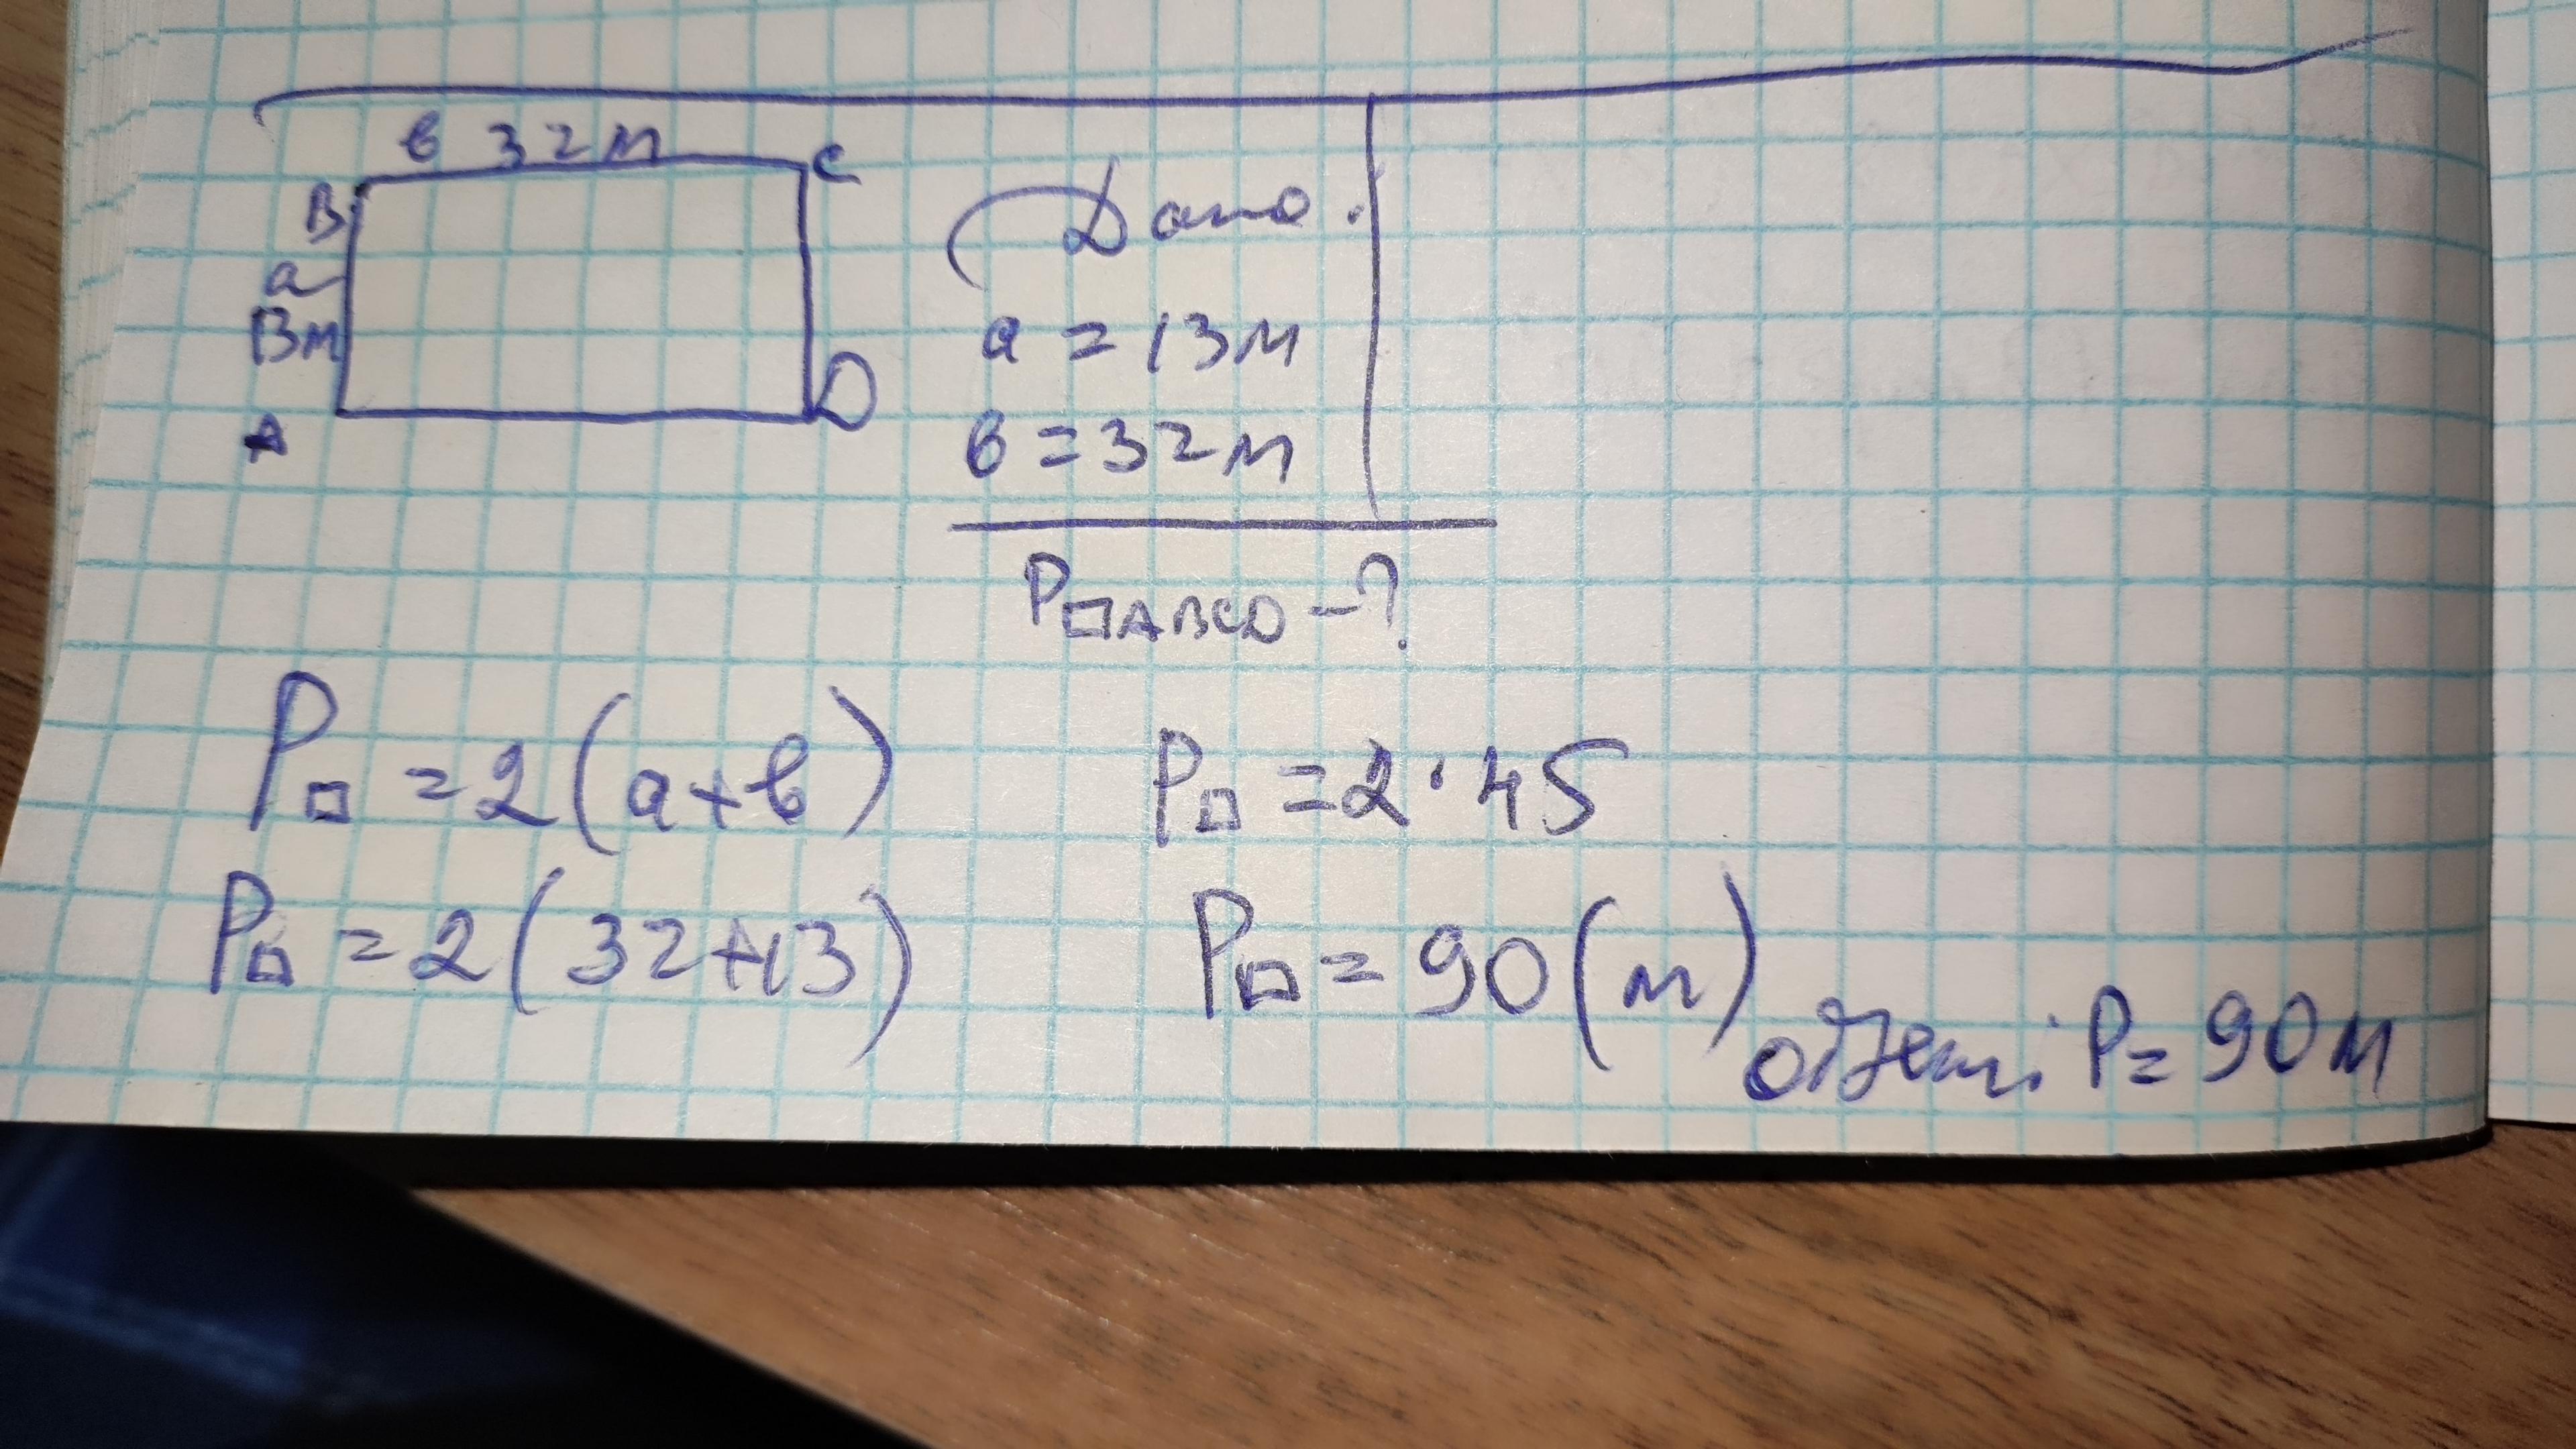 в 32м
B
C
a
13м
A
D
Дано:
a = 13м
в = 32м
P▱ABCD - ?
P□ = 2(a+в)
P□ = 2(32+13)
P□ = 2·45
P□ = 90(м)
Ответ: P = 90м